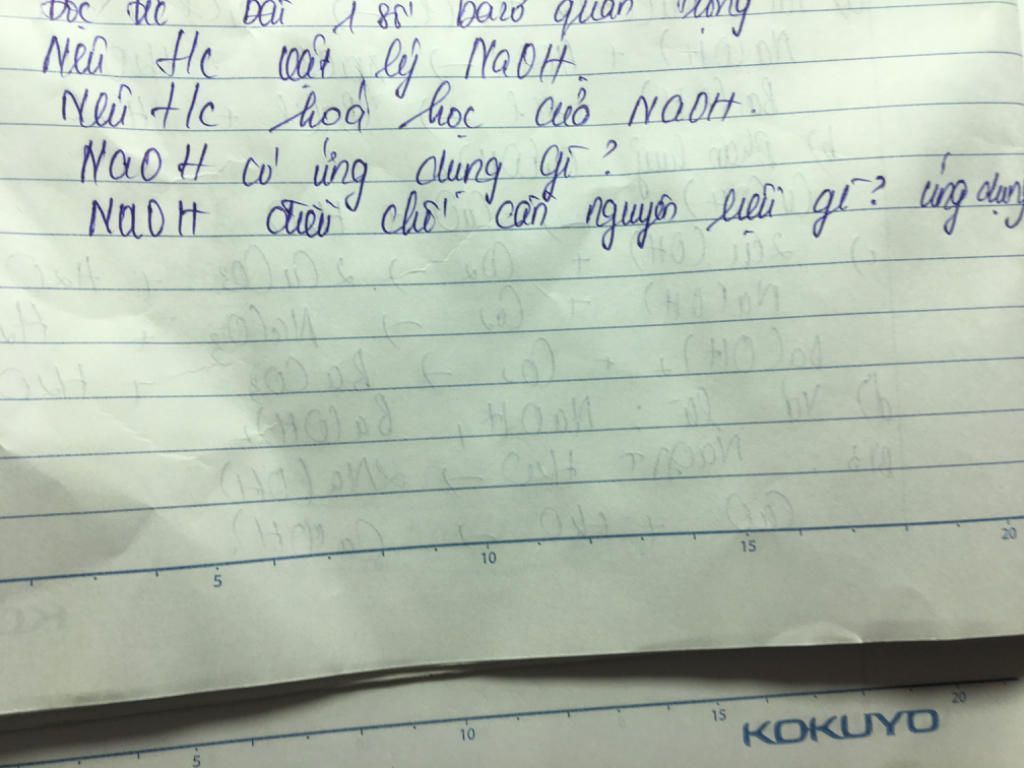 Đọc t/c bài 1 số bazơ quan trọng
Nêu t/c vật lý NaOH.
Nêu t/c hoá học của NaOH.
NaOH có ứng dụng gì?
NaOH điều chế cần nguyên liệu gì? ứng dụng
5 10 15 20
15 20
KOKUYO
5 10